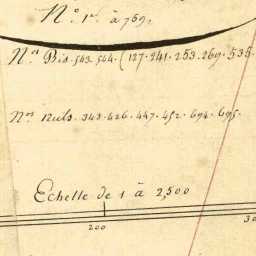 N.° 1.er à 769.
N.os Bis. 543. 564. (127. 241. 253. 269. 535.
N.os nuls. 343. 426. 447. 452. 694. 695.
Echelle de 1 à 2,500
200
30